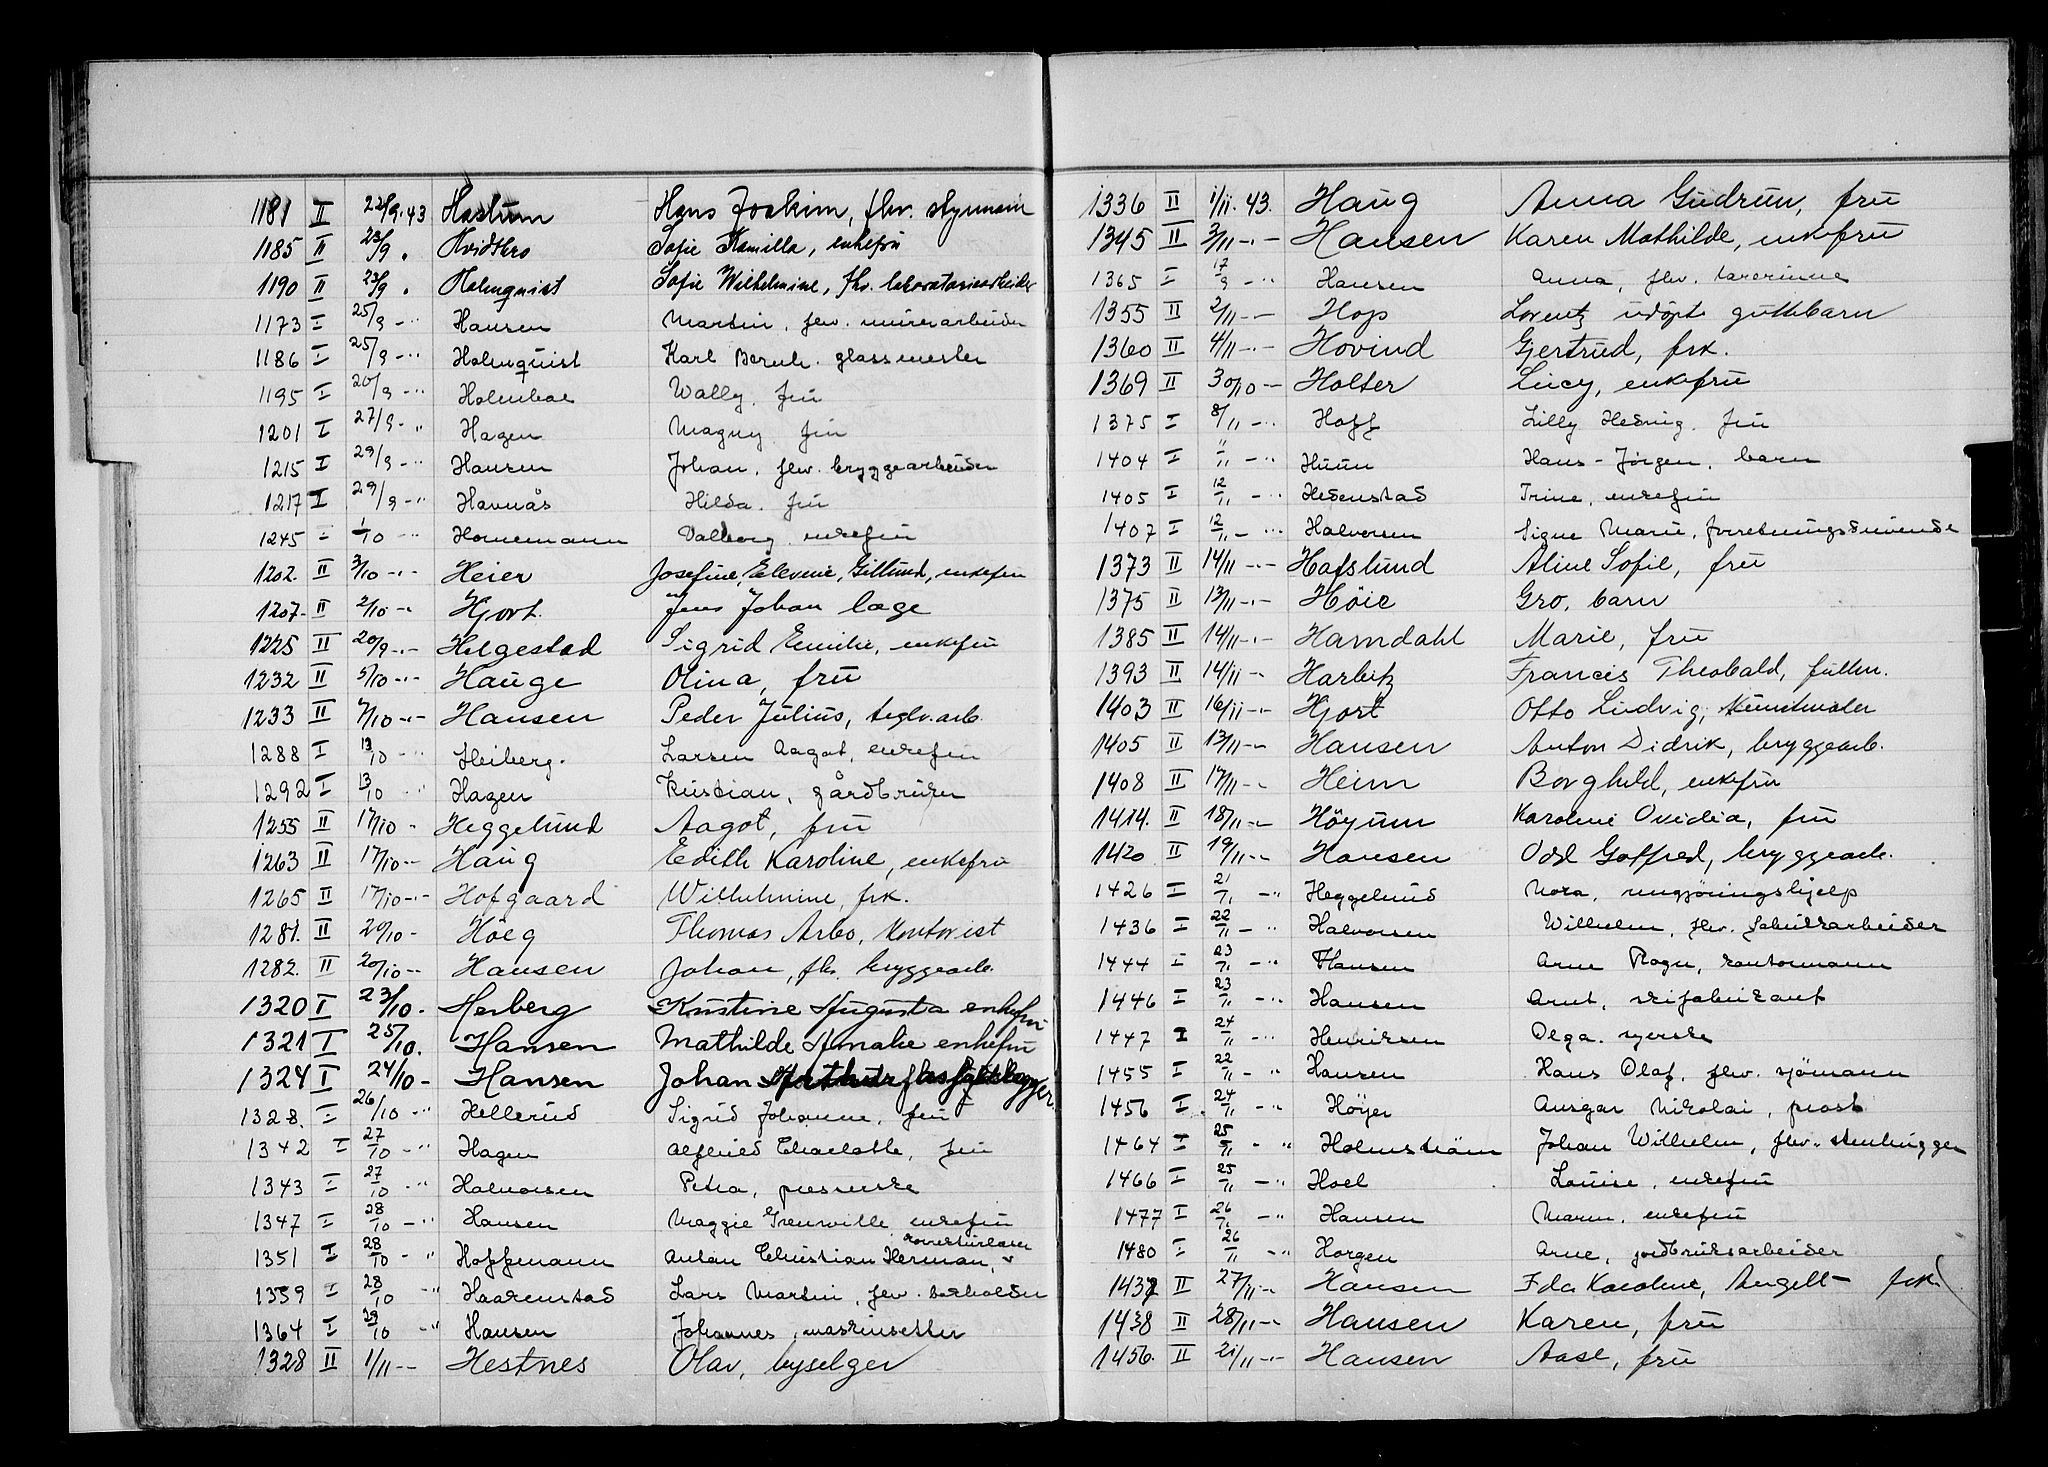 1181 II 22/9.43 Haslum Hans Joakim, fhv. styrmann
1185 II 23/9 . Hvidtbro Sofie Kamilla, enkefru
1190 II 23/9 . Holmquist Sofie Wilhelmine, fhv. laboratoriearbeider
1173 I 25/9 -" Hansen Martin, fhv. murerarbeider
1186 I 25/9 -" Holmquist Karl Bernh. glassmester
1195 I 20/9 -" Holmboe Wally, fru
1201 I 27/9 -" Hagen Magny, fru
1215 I 29/9 -" Hansen Johan, fhv. bryggearbeider
1217 I 29/9 -" Havnås Hilda, fru
1245 I 1/10 -" Hornemann Valborg, enkefru
1202. II 3/10 -"- Heier Josefine, Elevine, Gillund, enkefru
1207- II 2/10 -"- Hjort. Jens Johan læge
1225 II 20/9 -"- Helgestad Sigrid Emilie, enkefru
1232 II 5/10 -"- Hauge Olina, fru
1233 II 7/10 -"- Hansen Peder Julius, teglv.arb.
1288 I 13/10 -" Heiberg. Larsen Aagot, enkefru
1292 I 13/10 -" Hagen Kristian, gårdbruker
1255 II 17/10 - Heggelund Aagot, fru
1263 II 17/10 -"- Haug Edith Karoline, enkefru
1265 II 17/10 -"- Hofgaard Wilhelmine, frk.
1281. II 20/10 - Höeg Thomas Arbo, kontorist
1282. II 20/10 -"- Hansen Johan, fhv. bryggearb.
1320 I 23/10. Herberg Kristine Augusta enkefru
1321 I 25/10. Hansen Mathilde Amalie enkefru
1324 I 24/10 - Hansen Johan
1328. I 26/10 -" Hellerud Sigrid Johanne, fru
1342 I 27/10 -" Hagen Alfhild Charlotte, fru
1343 I 27/10 -" Halvorsen Petra, presserske
1347 I 28/10 -" Hansen Maggie Grenville enkefru
1351 I 28/10 -" Hoffmann Anton Christian Herman,
1359 I 28/10 -" Haarenstad Lars Martin, fhv.
1364 I 29/10 -" Hansen Johannes, maskinsetter
1328 II 1/11 -- Hestnes Olav, byselger
1336 II 1/11. 43. Haug Anna Gudrun, fru
1345 II 3/11 -"- Hansen Karen Mathilde, enkefru
1365 I 17/9 -" Hansen Anna, fhv.
1355 II 2/11 -"- Hop Lorentz udøpt guttebarn
1360 II 4/11 -"- Hovind Gjertrud, frk.
1369 II 30/10 - Holter Lucy, enkefru
1375 I 8/11 -" Hoff Lilly Hedvig, fru
1404 I 11/11 -" Huun Hans-Jörgen, barn
1405 I 12/11 -" Hedenstad Trine, enkefru
1407 I 12/11 -" Halvorsen Signe Marie, forretningsdrivende
1373 II 14/11 -"- Hafslund Aline Sofie, fru
1375 II 13/11 -"- Høie Gro, barn
1385 II 14/11 -"- Hamdahl Marie, fru
1393 II 14/11 -"- Harbitz Francis Theobald, fullm.
1403 II 16/11 -"- Hjort Otto Ludvig, kunstmaler
1405 II 13/11 -"- Hansen Anton Didrik, bryggearb.
1408 II 17/11 -"- Heim Borghild, enkefru
1414. II 18/11 -"- Höyum Karoline Ovidia, fru
1420 II 19/11 -"- Hansen Odd Gotfred, bryggearb.
1426 I 21/11 -" Heggelund Nora, rengjöringshjelp
1436 I 22/11 -" Halvorsen Wilhelm, fhv. fabrikkarbeider
1444 I 23/11 -" Hansen Arne Ragn, kontormann
1446 I 23/11 -" Hansen Arnt, skifabrikant
1447 I 24/11 -" Henriksen Olga, syerske
1455 I 22/11 -" Hansen Hans Olaf, fhv. sjömann
1456 I 24/11 -" Höyer Ansgar Nikolai, prost
1464 I 25/11 -" Holmström Johan Wilhelm, fhv. stenhugger
1466 I 25/11 -" Hoel Louise, enkefru
1477 I 26/11 -" Hansen Maren, enkefru
1480 I 26/11 -" Horgen Arne, jordbruksarbeider
1437 II 27/11 -"- Hansen Ida Karoline, Angell- frk.
1438 II 28/11 -"- Hansen Karen, fru
1456. II 21/11 -"- Hansen Aase, fru